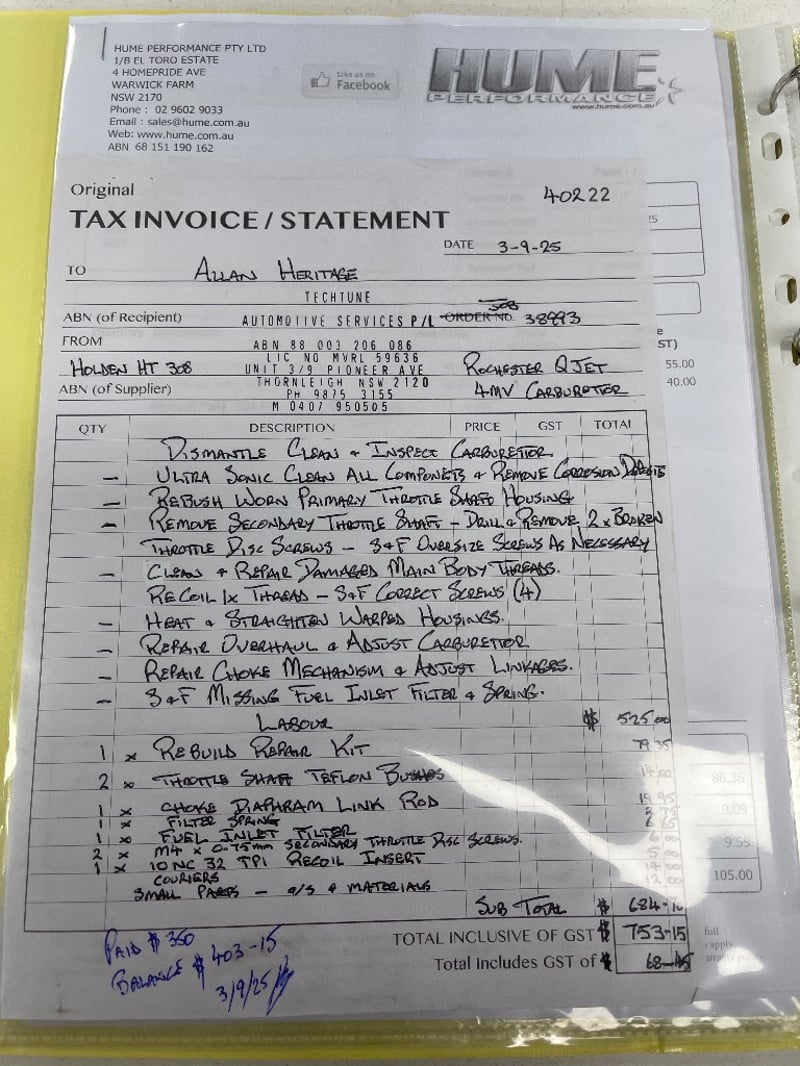 HUME PERFORMANCE PTY LTD
1/B EL TORO ESTATE
4 HOMEPRIDE AVE
WARWICK FARM
NSW 2170
Phone : 02 9602 9033
Email : sales@hume.com.au
Web: www.hume.com.au
ABN 68 151 190 162
Like us on
Facebook
HUME
PERFORMANCE
www.hume.com.au
Original
40222
TAX INVOICE / STATEMENT
DATE 3-9-25
TO ALLAN HERITAGE
TECHTUNE
ABN (of Recipient) AUTOMOTIVE SERVICES P/L ORDER NO. JOB 38993
FROM ABN 88 003 206 086
LIC NO MVRL 59636
HOLDEN HT 308 UNIT 3/9 PIONEER AVE ROCHESTER QJET
ABN (of Supplier) THORNLEIGH NSW 2120 4MV CARBURETTOR
PH 9875 3155
M 0407 950505
55.00
40.00
QTY DESCRIPTION PRICE GST TOTAL
DISMANTLE CLEAN & INSPECT CARBURETTOR
— ULTRA SONIC CLEAN ALL COMPONETS & REMOVE CORROSION
— REBUSH WORN PRIMARY THROTTLE SHAFT HOUSING
— REMOVE SECONDARY THROTTLE SHAFT - DRILL & REMOVE 2 x BROKEN
THROTTLE DISC SCREWS - S&F OVERSIZE SCREWS AS NECESSARY
— CLEAN & REPAIR DAMAGED MAIN BODY THREADS.
RECOIL 1x THREAD - S&F CORRECT SCREWS (4)
— HEAT & STRAIGHTEN WARPED HOUSINGS.
— REPAIR OVERHAUL & ADJUST CARBURETTOR
— REPAIR CHOKE MECHANISM & ADJUST LINKAGES.
— S&F MISSING FUEL INLET FILTER & SPRING.
LABOUR $ 525 00
1 x REBUILD REPAIR KIT 79 35
2 x THROTTLE SHAFT TEFLON BUSHES
1 x CHOKE DIAPHRAM LINK ROD 19 95
1 x FILTER SPRING
1 x FUEL INLET FILTER
2 x M4 x 0.75mm SECONDARY THROTTLE DISC SCREWS.
1 x 10NC 32 TPI RECOIL INSERT
COURIERS
SMALL PARTS - O/S & MATERIALS
86.36
9.09
9.55
105.00
SUB TOTAL $ 684-70
TOTAL INCLUSIVE OF GST $ 753-15
Total Includes GST of $ 68-45
PAID $350
BALANCE $403-15
3/9/25